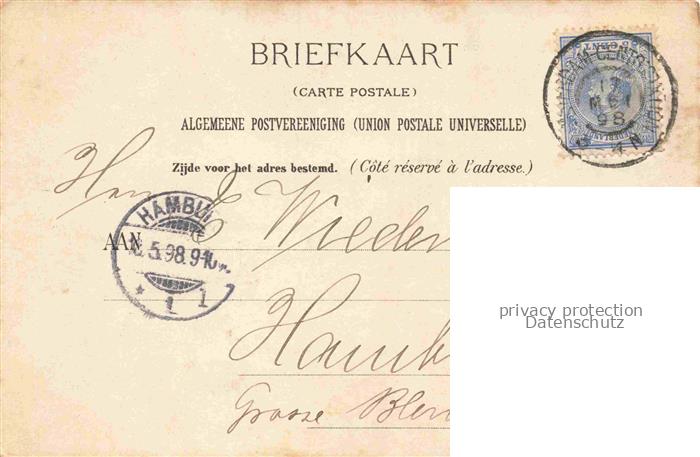 BRIEFKAART
(CARTE POSTALE)
ALGEMEENE POSTVEREENIGING (UNION POSTALE UNIVERSELLE)
Zijde voor het adres bestemd. (Côté réservé à l'adresse.)
Herrn E Wieden
AAN
Hamb
Grosse Blei
HAMBU
5.98.9-10
1
1
MEI
98
4 N
NEDERLAND
privacy protection
Datenschutz